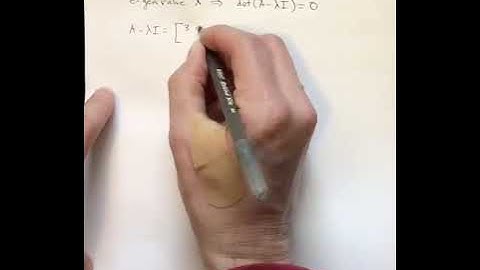 eigenvalue λ ⇒ det(A - λI) = 0
A - λI = [ 3